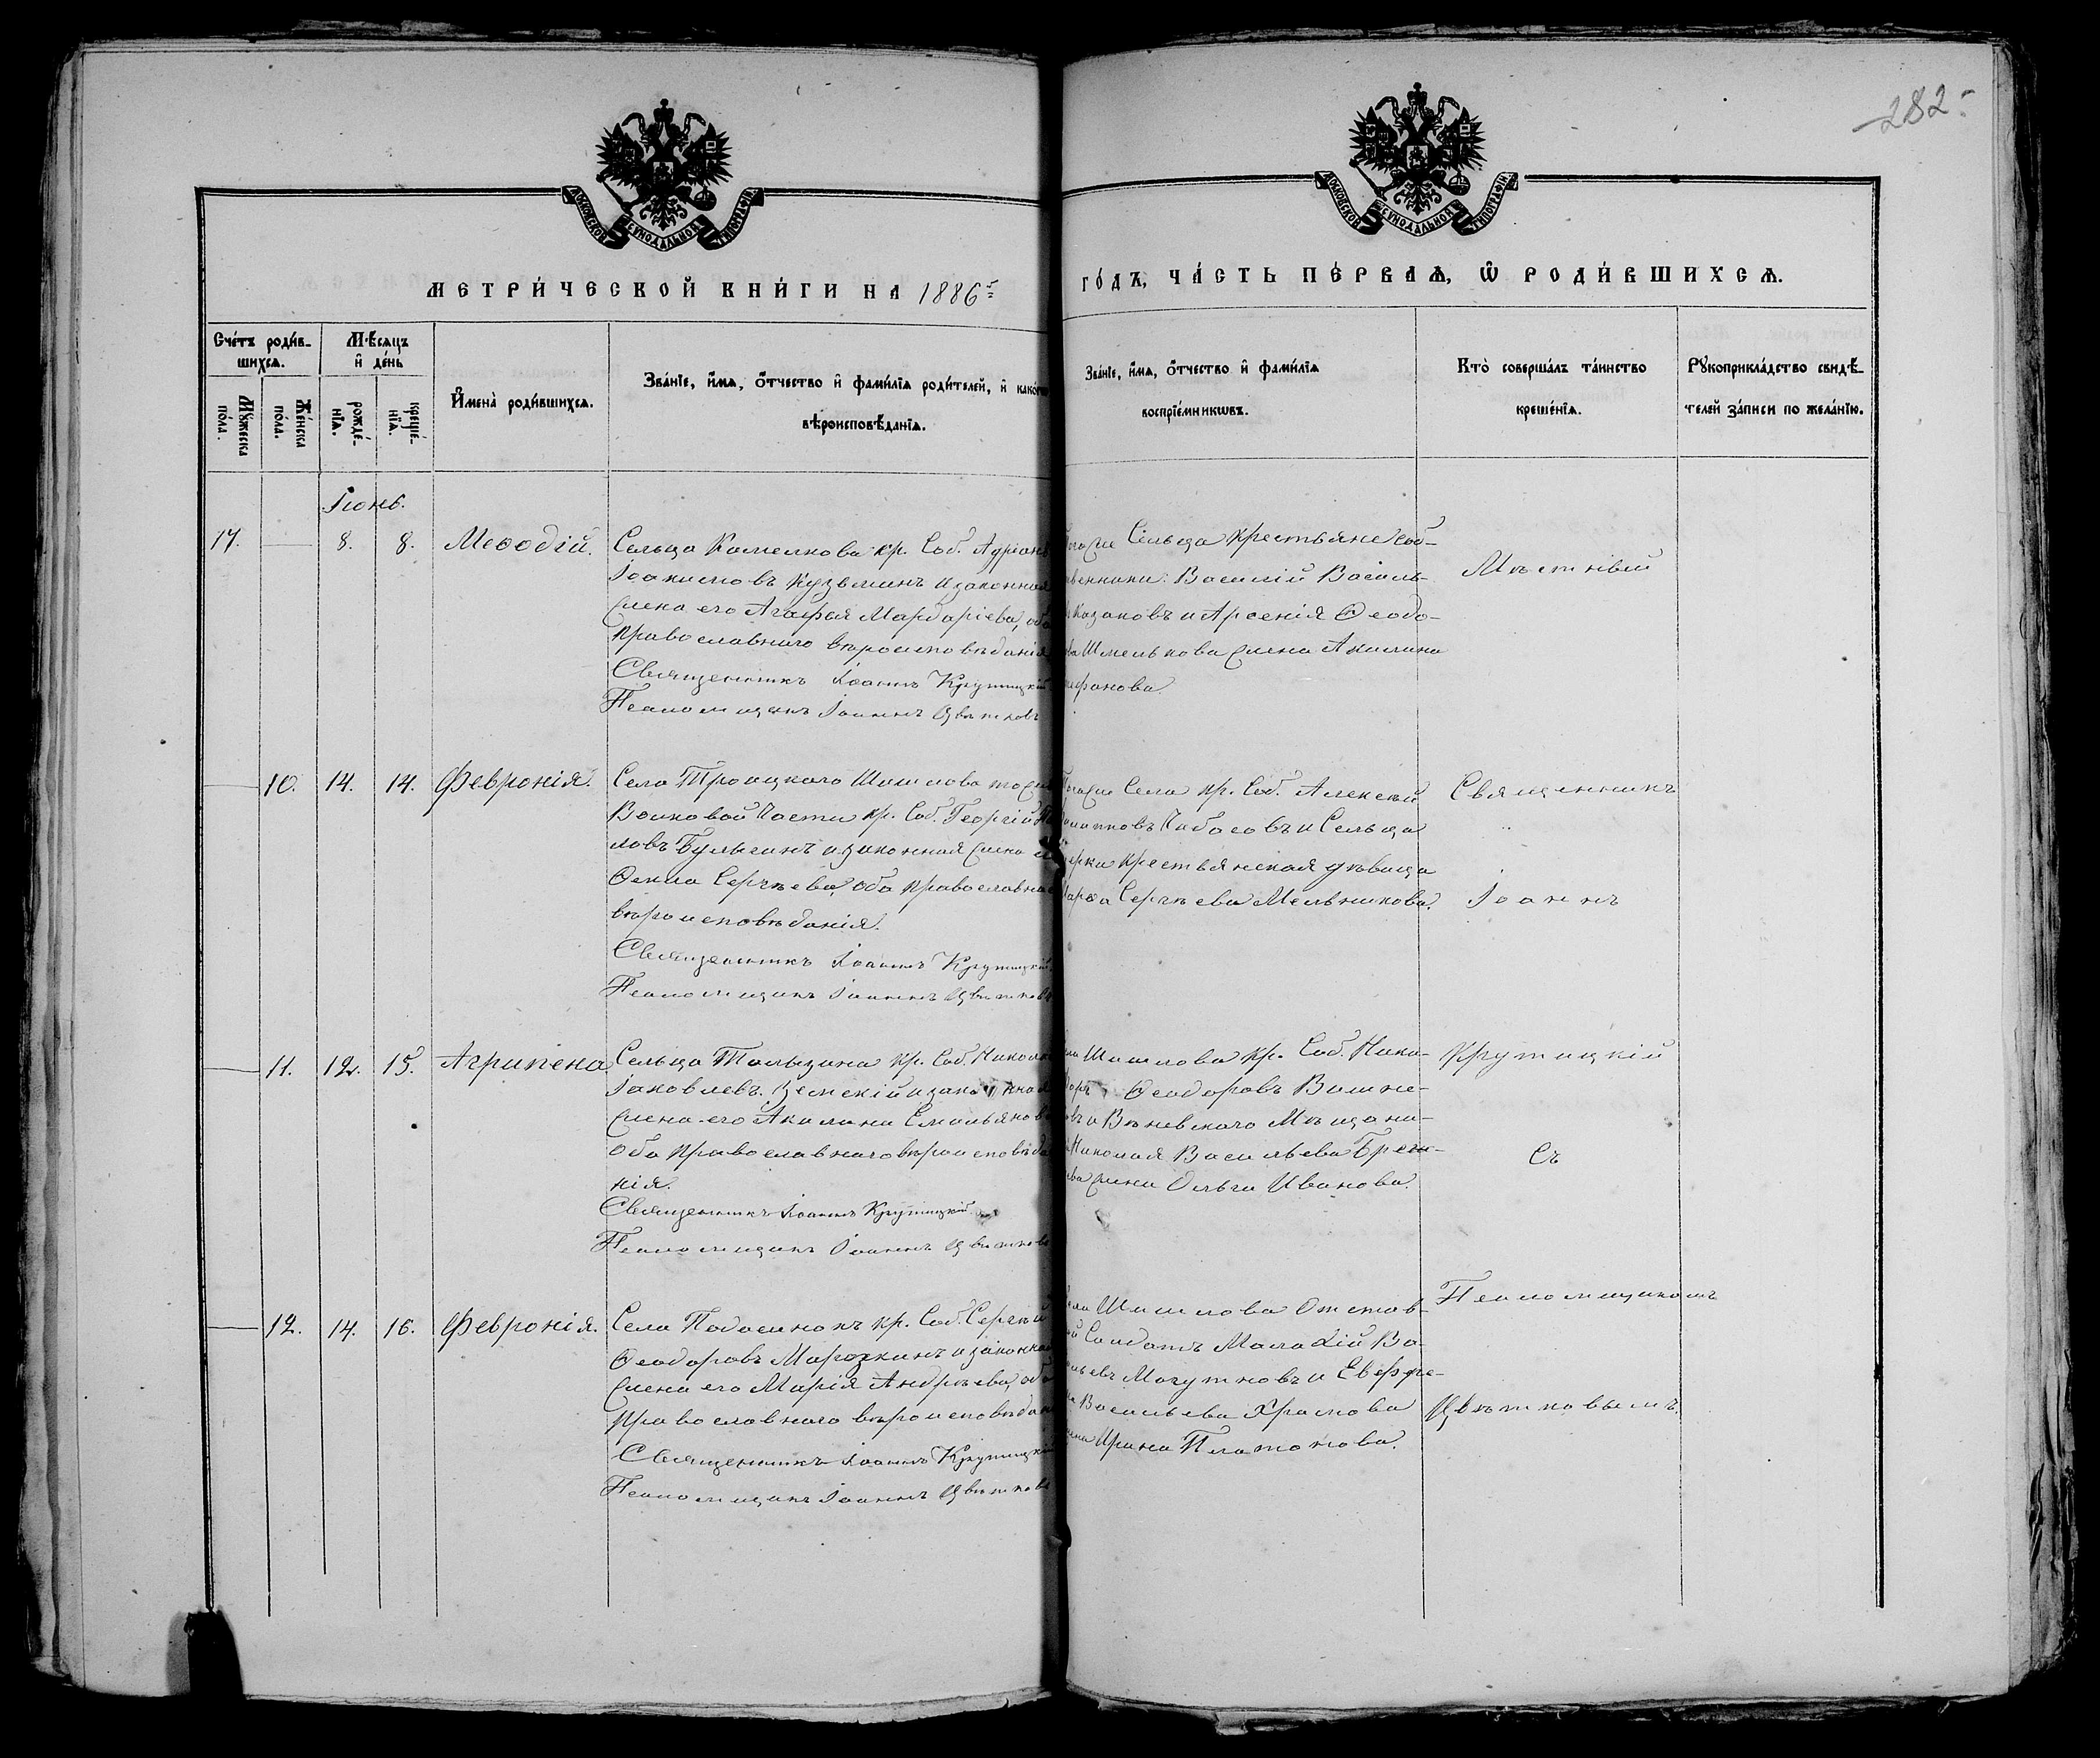 282
МОСКОВСКОЙ СѴНОДАЛЬНОЙ ТИПОГРАФІИ
МОСКОВСКОЙ СѴНОДАЛЬНОЙ ТИПОГРАФІИ
МЕТРИ́ЧЕСКОЙ КНИ́ГИ НА 1886
ГО́ДЪ, ЧА́СТЬ ПЕ́РВАѦ, Ѡ҆ РОДИ́ВШИХСѦ.
Сче́тъ роди́в-
шихсѧ.
Мѣ́сѧцъ
и҆ де́нь
Мꙋ́жеска
по́ла.
Же́нска
по́ла.
рожде́-
нїѧ.
креще́-
нїѧ.
И҆мена̀ роди́вшихсѧ.
Зва́нїе, и҆́мѧ, ѻ҆́тчество и҆ фамѝлїѧ роди́телей, и҆ како́гѡ
вѣроисповѣ́данїѧ.
Зва́нїе, и҆́мѧ, ѻ҆́тчество и҆ фамѝлїѧ
воспрїе́мникѡвъ.
Кто̀ соверша́лъ та́инство
креще́нїѧ.
Рꙋкоприкла́дство свидѣ́-
телей за́писи по жела́нїю.
Іюнь.
17. 8. 8. Меѳодій. Сельца Камелкова кр. Соб. Адріанъ
Іоакимовъ Кузьминъ и законная
жена его Агафья Мардаріева, оба
православнаго вѣроисповѣданія
Священникъ Іоаннъ Крутицкій
Псаломщикъ Іоаннъ Цвѣтковъ
Тогоже Сельца крестьяне Соб-
ственники: Василій Василь-
Казаковъ и Арсенія Ѳеодо-
Шмелькова жена Акилина
Мѣстный
10. 14. 14. Февронія. Села Троицкаго Шишлова тожъ
Волковой Части кр. Соб. Георгій
ловъ Булыгинъ и законная жена
Ѳекла Сергѣева, оба православнаго
вѣроисповѣданія.
Священникъ Іоаннъ Крутицкій
Псаломщикъ Іоаннъ Цвѣтковъ
Тогоже Села кр. Соб. Алексѣй
и Сельца
крестьянская дѣвица
Марѳа Сергѣева Мельникова.
Священникъ
Іоаннъ
11. 12. 15. Агрипена. Сельца Тальцина кр. Соб. Николай
Іаковлевъ Земскій и законная
жена его Акилина Емельянова
оба православнаго вѣроисповѣда-
нія.
Священникъ Іоаннъ Крутицкій
Псаломщикъ Іоаннъ Цвѣтковъ
Шишлова кр. Соб. Ника-
Ѳеодоровъ Вишне-
и Веневскаго Мѣщани-
Николая Васильева
жена Ольга Иванова.
Крутицкій
Съ
12. 14. 16. Февронія. Села Подосинокъ кр. Соб. Сергѣй
Ѳеодоровъ Марозкинъ и законная
жена его Марія Андреева, оба
православнаго вѣроисповѣданія
Священникъ Іоаннъ Крутицкій
Псаломщикъ Іоаннъ Цвѣтковъ
Шишлова Отстав-
Солдатъ Малахій Ва-
Могутновъ и
Васильева Храмова
Ирина Платонова.
Псаломщикомъ
Цвѣтковымъ.